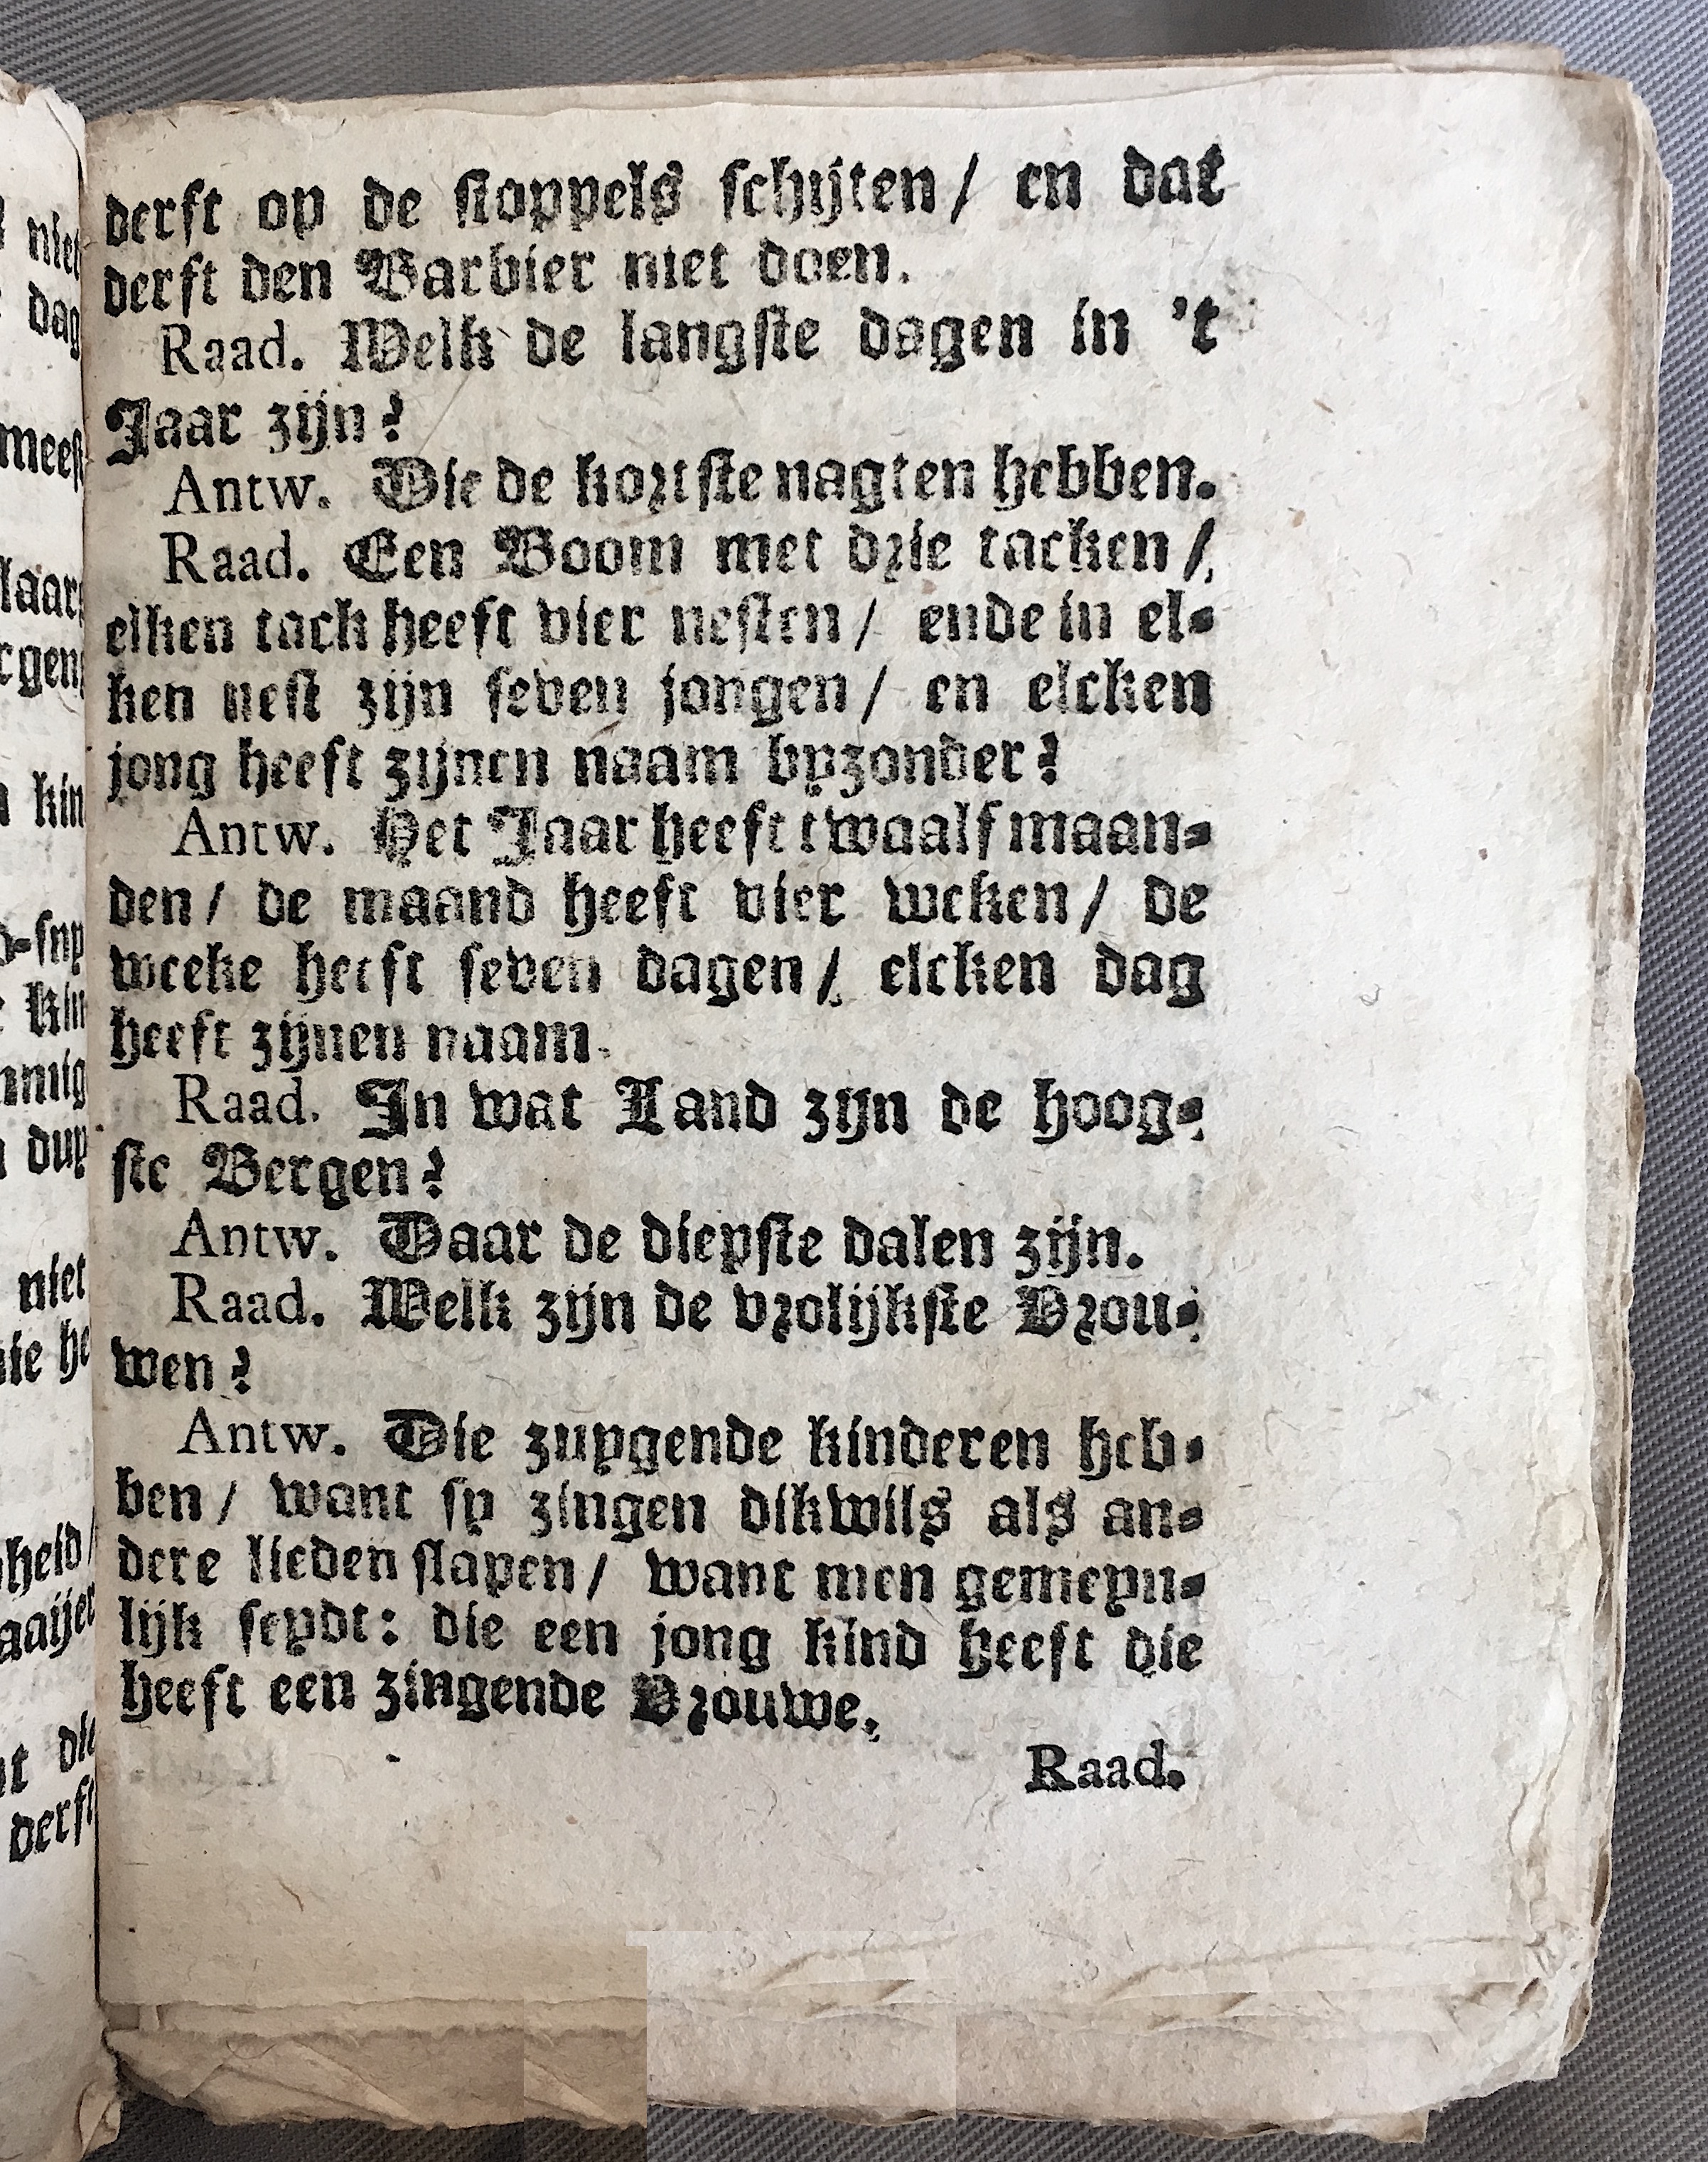 derft op de stoppels schijten / en dat
derft den Barbier niet doen.
Raad. Welk de langste dagen in 't
Jaar zijn?
Antw. Die de kortste nagten hebben.
Raad. Een Boom met drie tacken /
elken tack heeft vier nesten / ende in el-
ken nest zijn seven jongen / en elcken
jong heeft zijnen naam byzonder?
Antw. Het Jaar heeft twaalf maan-
den / de maand heeft vier weken / de
weeke heeft seven dagen / elcken dag
heeft zijnen naam.
Raad. In wat Land zijn de hoog-
ste Bergen?
Antw. Daar de diepste dalen zijn.
Raad. Welk zijn de vrolijkste Vrou-
wen?
Antw. Die zuygende kinderen heb-
ben / want sy zingen dikwils als an-
dere lieden slapen / want men gemeyn-
lijk seydt: die een jong kind heeft die
heeft een zingende Vrouwe.
Raad.